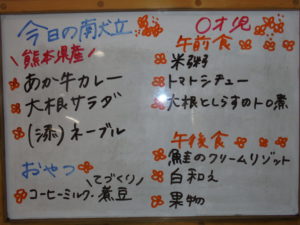 今日の献立
熊本県産
あか牛カレー
大根サラダ
(添)ネーブル
おやつ
てづくり
コーヒーミルク・煮豆
〇才児
午前食
米粥
トマトシチュー
大根としらすのトロ煮
午後食
鮭のクリームリゾット
白和え
果物